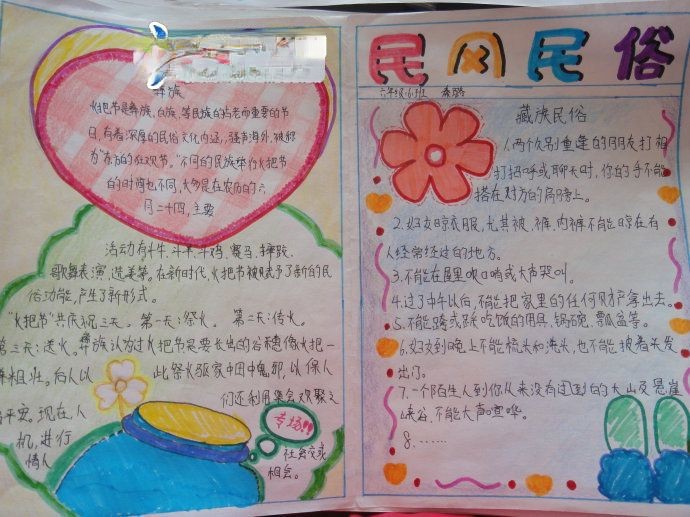 彝族
火把节是彝族、白族、等民族的古老而重要的节
日,有着深厚的民俗文化内涵,蜚声海外,被称
为“东方的狂欢节。”不同的民族举行火把节
的时间也不同,大多是在农历的六
月二十四,主要
活动有斗牛、斗羊、斗鸡、赛马、摔跤、
歌舞表演、选美等。在新时代,火把节被赋予了新的民
俗功能,产生了新形式。
“火把节”共庆祝三天。第一天:祭火。第二天:传火。
第三天:送火。彝族认为过火把节是要长出的谷穗像火把一
样粗壮。后人以此祭火驱家中田中鬼邪,以保人
平安。现在,人们还利用集会欢聚之
机,进行社会交或
情人相会。
专场!!
民风民俗
六年级(6)班
藏族民俗
1.两个久别重逢的朋友打相
打招呼或聊天时,你的手不能
搭在对方的肩膀上。
2.妇女晾衣服,尤其被、裤、内裤不能晾在有
人经常经过的地方。
3.不能在屋里吹口哨或大声哭叫。
4.过了中午以后,不能把家里的任何财产拿出去。
5.不能跨或踩吃饭的用具,锅碗、瓢瓜盆等。
6.妇女到晚上不能梳头和洗头,也不能披着头发
出门。
7.一个陌生人到你从来没有团到的大山及悬崖
峡谷,不能大声喧哗。
8.……